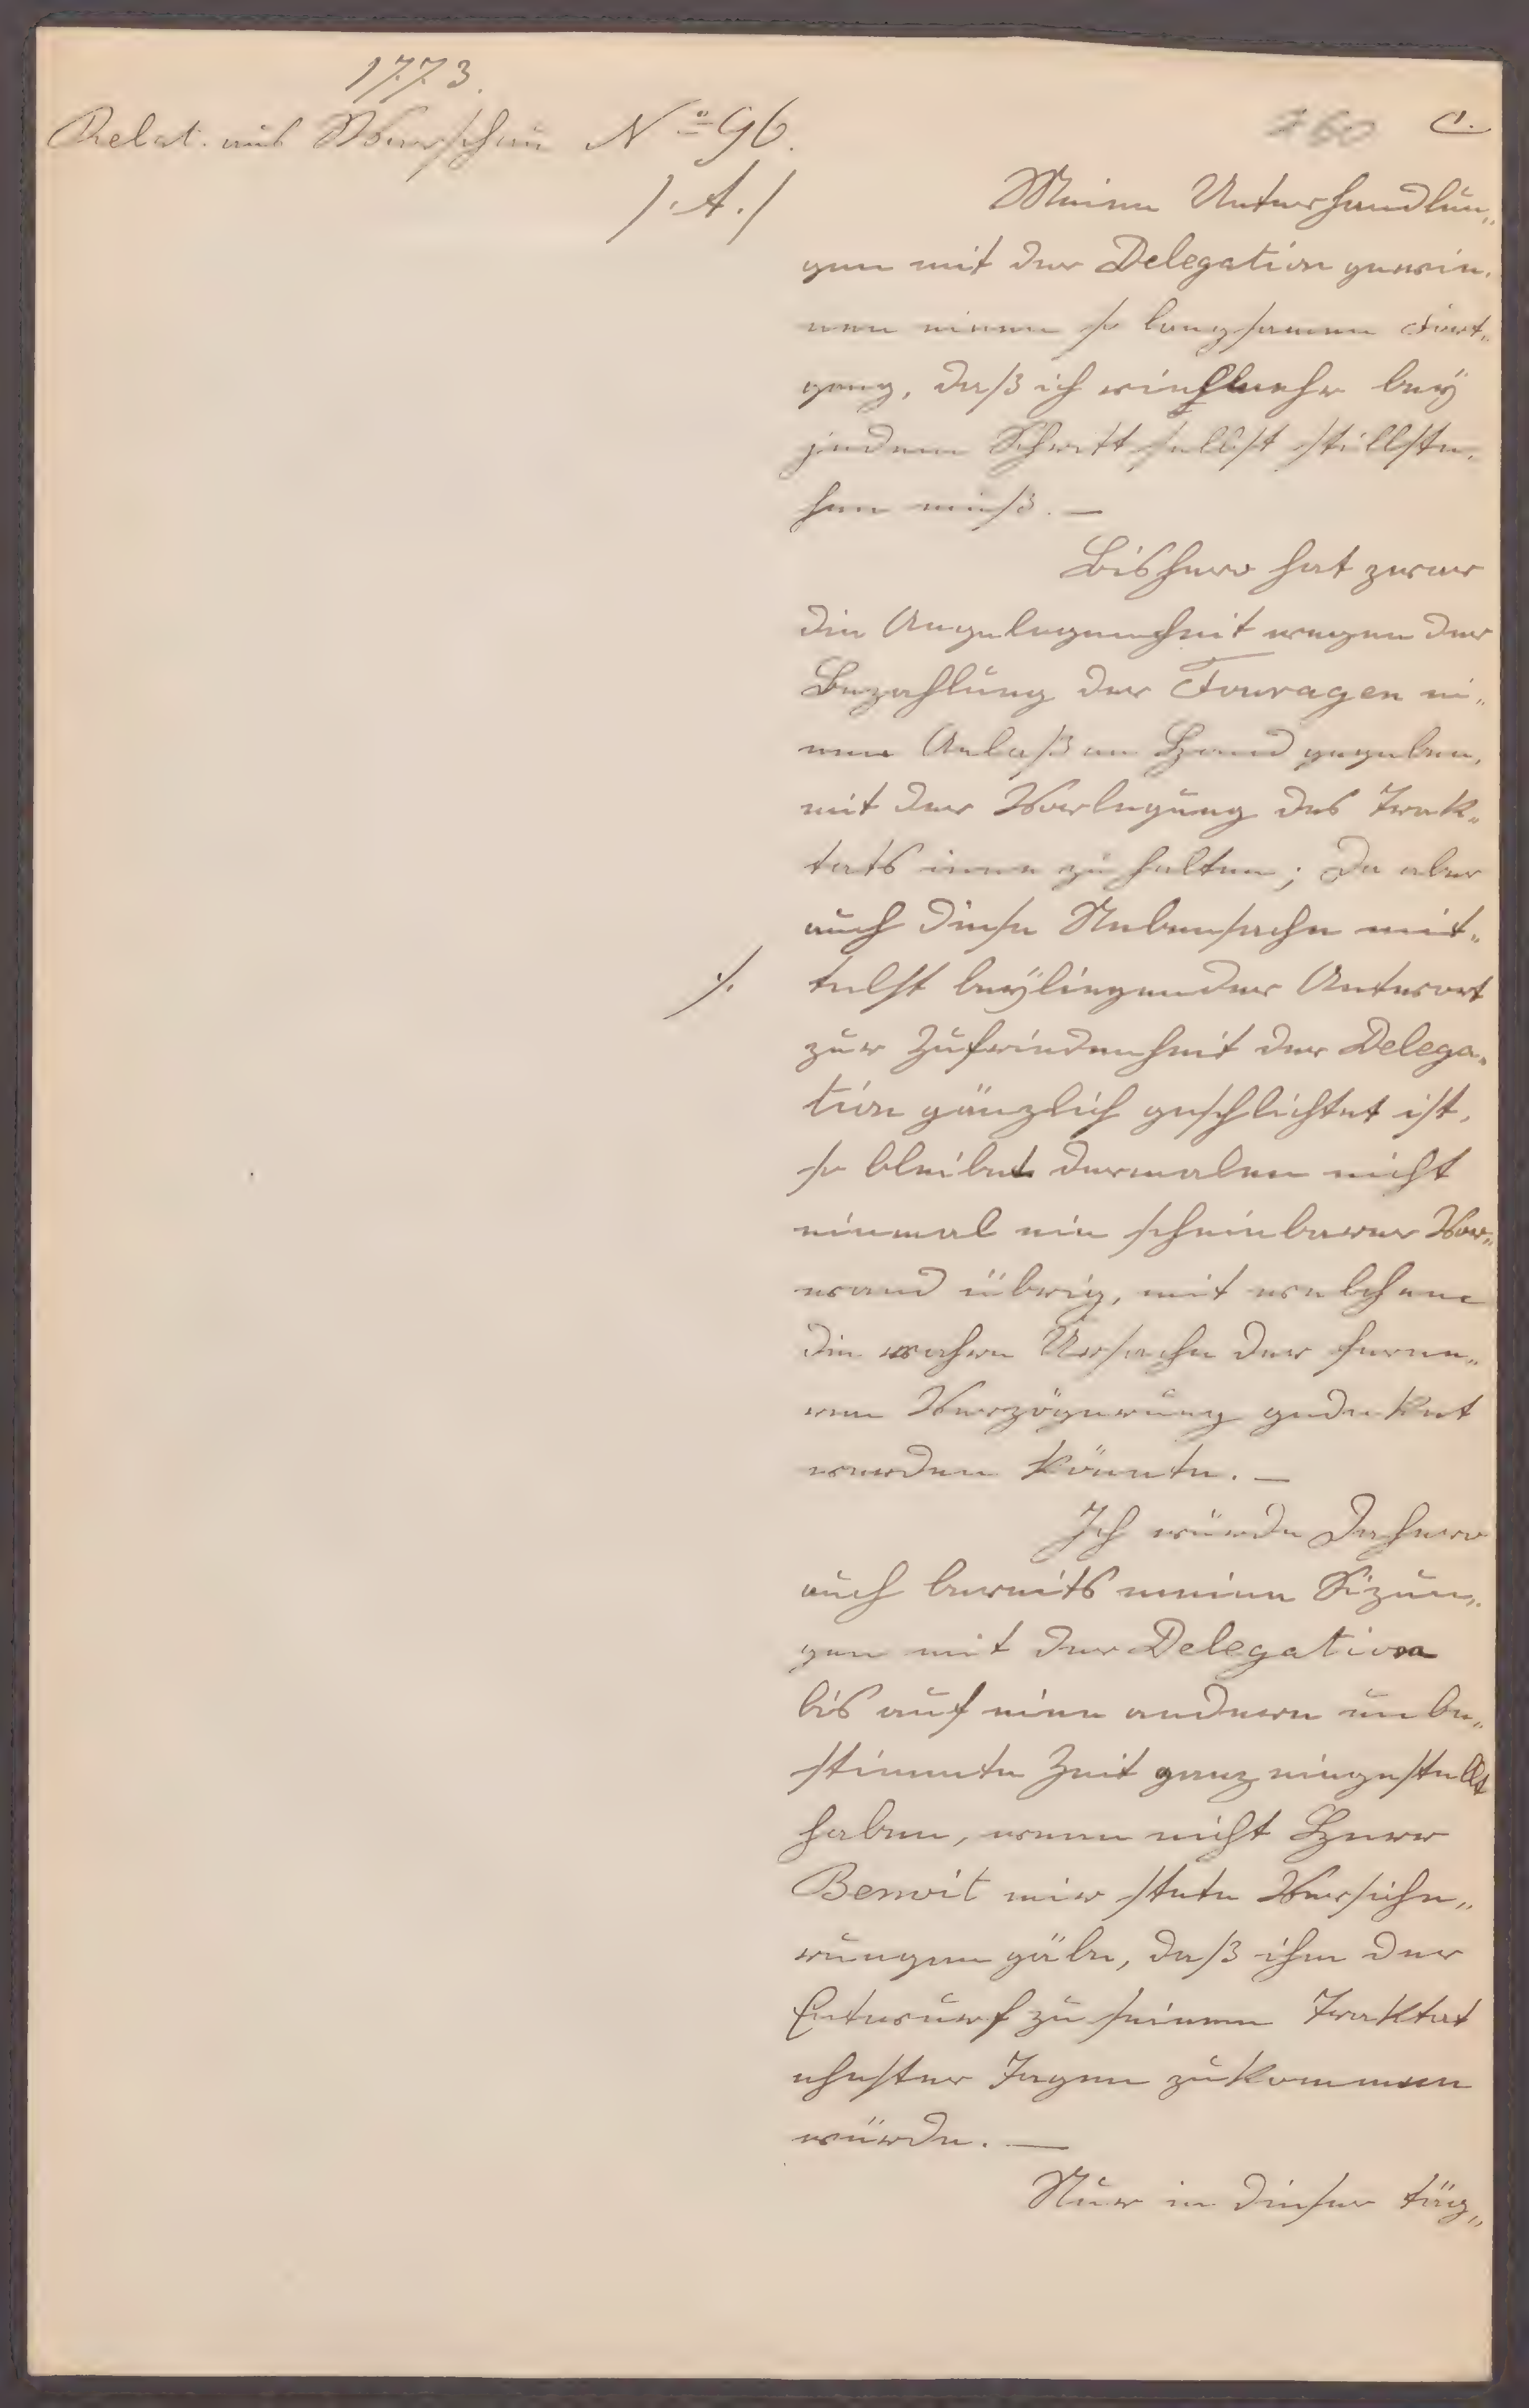 1773.
Relat. aus Warschau No 96.
260 C.
/.A./
Meine Unterhandlun„
gen mit der Delegation gewin„
nen einen so langsamen Fort„
gang, daß ich vielmehr beÿ
jedem Schritt selbst stillste„
hen muß. —
Bishero hat zwar
die Angelegenheit wegen der
Bezahlung der Fouragen ei„
nen Anlaß an Hand gegeben,
mit der Vorlegung des Trak„
tats inne zu halten; da aber
auch diese Nebensache mit„
./. telst beÿliegender Antwort
zur Zufriedenheit der Delega„
tion gänzlich geschlichtet ist,
so bleibet dermalen nicht
einmal ein scheinbarer Vor„
wand übrig, mit welchem
die wahre Ursache der ferne„
ren Verzögerung gedeket
werden könnte. —
Ich würde dahero
auch bereits meine Sizun„
gen mit der Delegation
bis auf eine andere unbe„
stimmte Zeit ganz eingestellt
haben, wenn nicht Herr
Benoit mir stete Versiche„
rungen gäbe, daß ihm der
Entwurf zu seinem Traktat
ehester Tagen zukommen
würde. —
Nur in dieser täg„